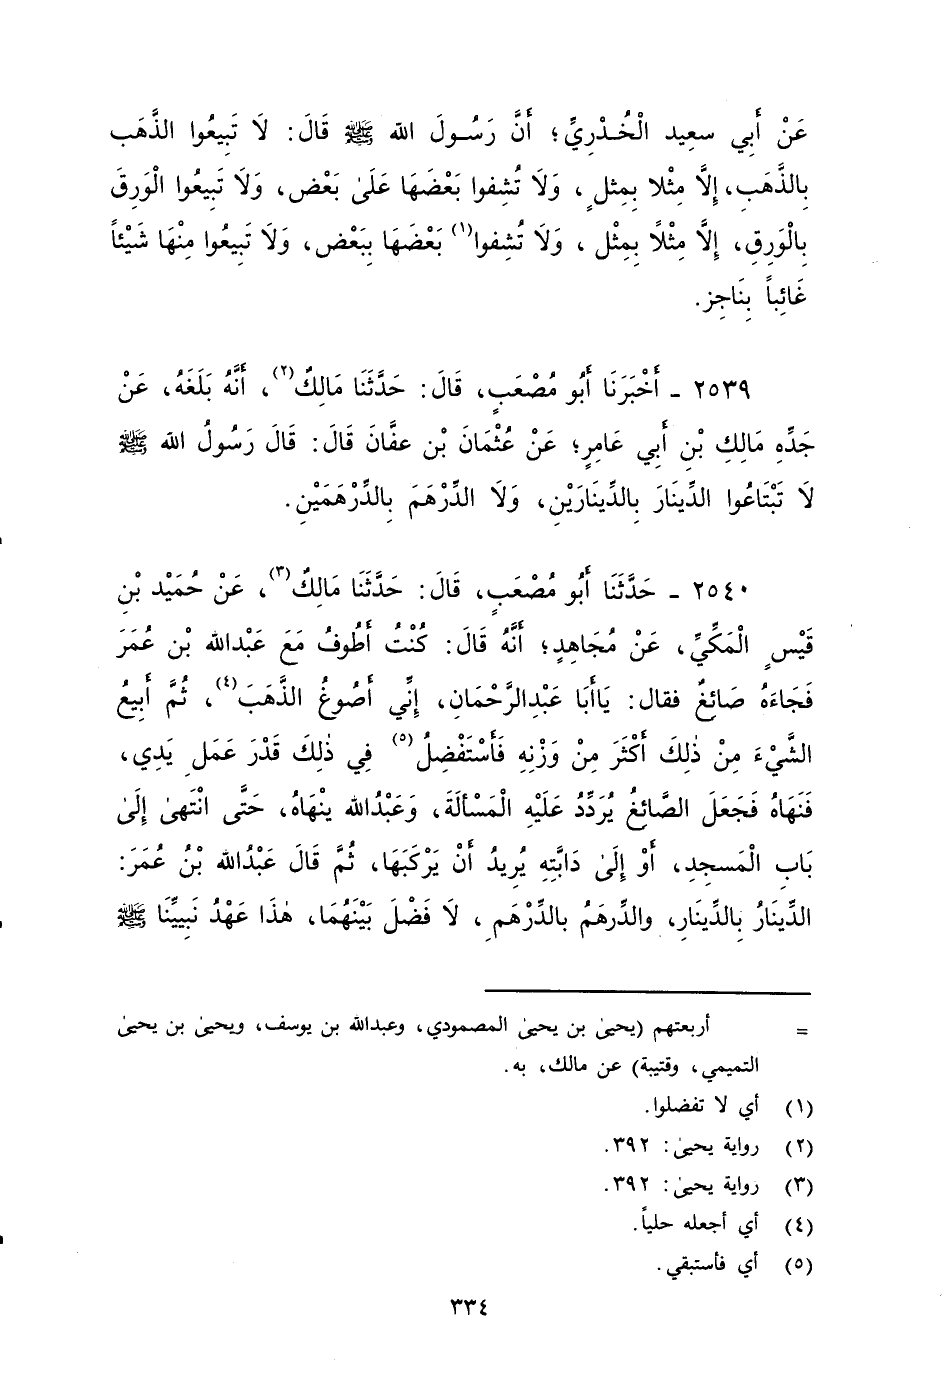 عَنْ أَبِي سعِيد الْخُدْرِيِّ؛ أَنَّ رَسُولَ الله ﷺ قَالَ: لَا تَبِيعُوا الذَّهَب
بِالذَّهَبِ، إِلَّا مِثْلا بِمِثلٍ، وَلَا تُشِفوا بَعْضَهَا عَلَىٰ بَعْض، وَلَا تَبِيعُوا الْوَرِقَ
بِالْوَرِقِ، إِلَّا مِثْلًا بِمِثْل، وَلَا تُشِفوا(١) بَعْضَهَا بِبَعْض، وَلَا تَبِيعُوا مِنْهَا شَيْئاً
غَائِباً بِنَاجِز.
٢٥٣٩ ـ أَخْبَرَنَا أَبُو مُصْعَبٍ، قَالَ: حَدَّثَنَا مَالِكٌ(٢)، أَنَّهُ بَلَغَهُ، عَنْ
جَدِّهِ مَالِكِ بْنِ أَبِي عَامِرٍ؛ عَنْ عُثْمَانَ بْن عفَّانَ قَالَ: قَالَ رَسُولُ الله ﷺ
لَا تَبْتَاعُوا الدِّينَارَ بِالدِّينَارَيْنِ، وَلَا الدِّرْهَمَ بِالدِّرْهَمَيْنِ.
٢٥٤٠ ـ حَدَّثَنَا أَبُو مُصْعَبٍ، قَالَ: حَدَّثَنَا مَالِكٌ(٣)، عَنْ حُمَيْد بْنِ
قَيْسٍ الْمَكِّيِّ، عَنْ مُجَاهِدٍ؛ أَنَّهُ قَالَ: كُنْتُ أَطُوفُ مَعَ عَبْدالله بْن عُمَرَ
فَجَاءَهُ صَائِغٌ فقال: يَاأَبَا عَبْدِالرَّحْمَانِ، إِنِّي أَصُوغُ الذَّهَبَ(٤)، ثُمَّ أَبِيعُ
الشَّيْءَ مِنْ ذٰلِكَ أَكْثَرَ مِنْ وَزْنِهِ فَأَسْتَفْضِلُ(٥) فِي ذٰلِكَ قَدْرَ عَمَلِ يَدِي،
فَنَهَاهُ فَجَعَلَ الصَّائِغُ يُرَدِّدُ عَلَيْهِ الْمَسْأَلَةَ، وَعَبْدُالله يَنْهَاهُ، حَتَّى انْتَهىٰ إِلَىٰ
بَابِ الْمَسجِدِ، أَوْ إِلَىٰ دَابَّتِهِ يُرِيدُ أَنْ يَرْكَبَهَا، ثُمَّ قَالَ عَبْدُالله بْنُ عُمَرَ:
الدِّينَارُ بِالدِّينَارِ، والدِّرهَمُ بالدِّرْهَمِ، لَا فَضْلَ بَيْنَهُمَا، هٰذَا عَهْدُ نَبِيِّنَا ﷺ
= أربعتهم (يحيىٰ بن يحيىٰ المصمودي، وعبدالله بن يوسف، ويحيىٰ بن يحيىٰ
التميمي، وقتيبة) عن مالك، به.
(١) أي لا تفضلوا.
(٢) رواية يحيىٰ: ٣٩٢.
(٣) رواية يحيىٰ: ٣٩٢.
(٤) أي أجعله حلياً.
(٥) أي فأستبقي.
٣٣٤